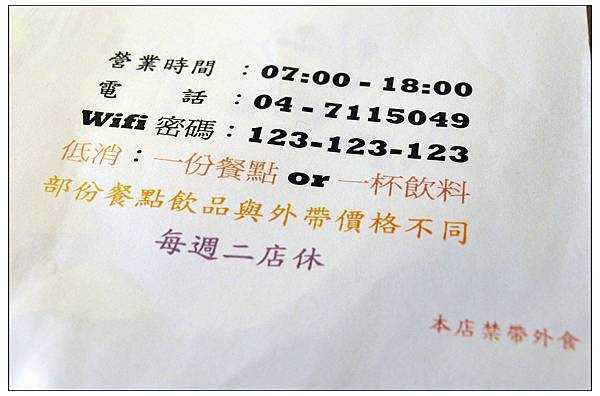 營業時間 ：07:00 - 18:00
電　　話 ：04 - 7115049
Wifi 密碼：123-123-123
低消：一份餐點 or 一杯飲料
部份餐點飲品與外帶價格不同
每週二店休
本店禁帶外食